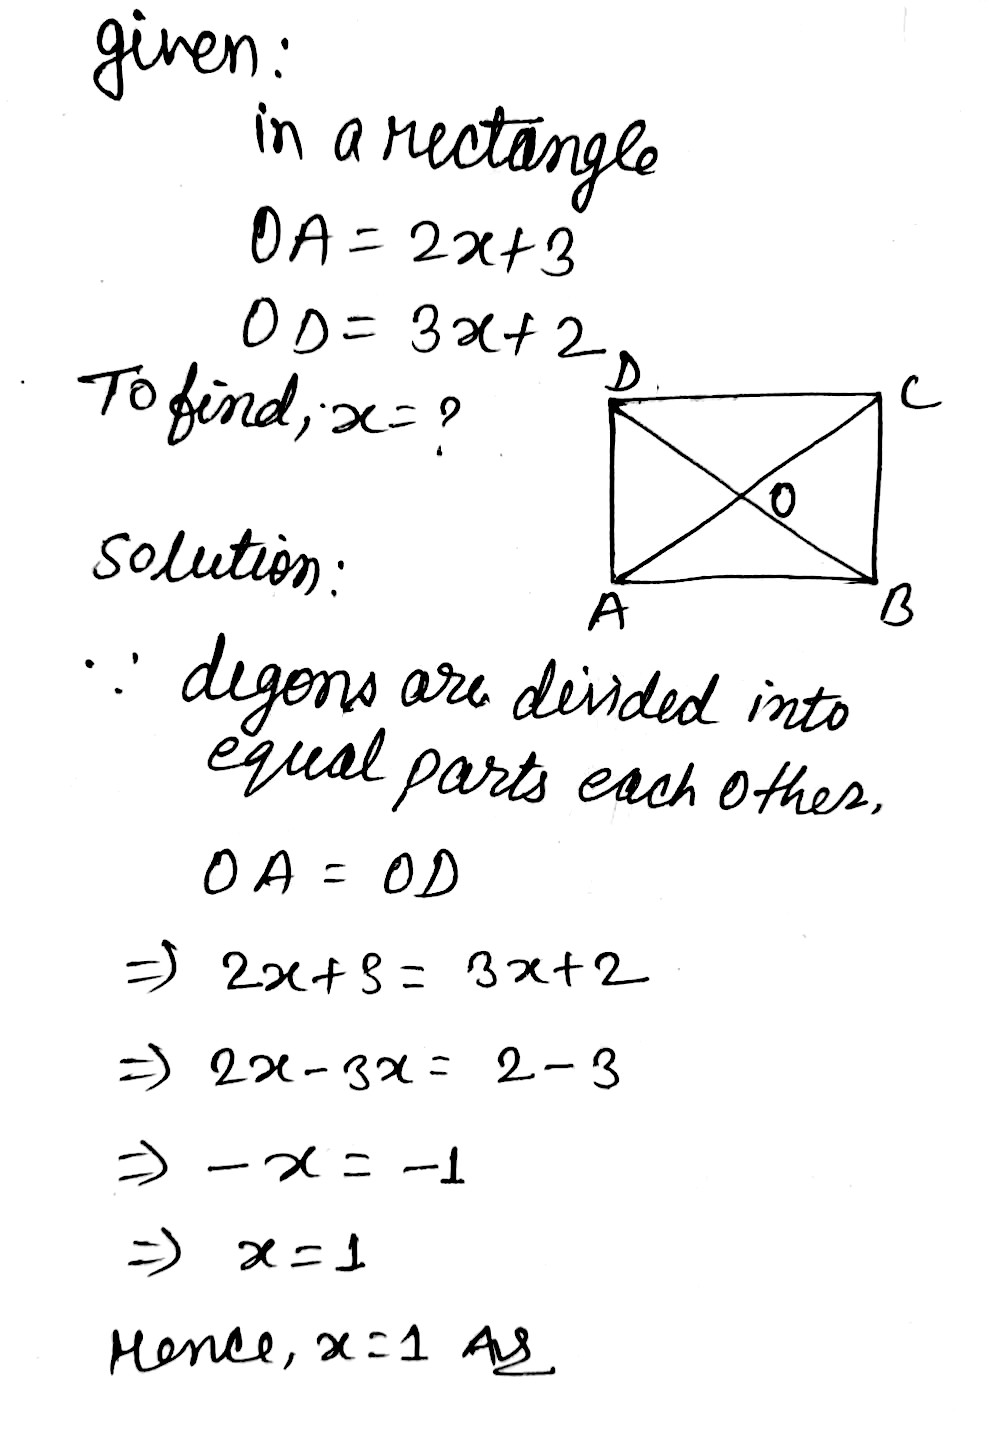 given:
in a rectangle
OA = 2x+3
OD = 3x+2
To find, x = ?
D
C
O
A
B
Solution:
∵ degons are devided into
equal parts each other.
OA = OD
⇒ 2x+3 = 3x+2
⇒ 2x-3x = 2-3
⇒ -x = -1
⇒ x = 1
Hence, x = 1 As